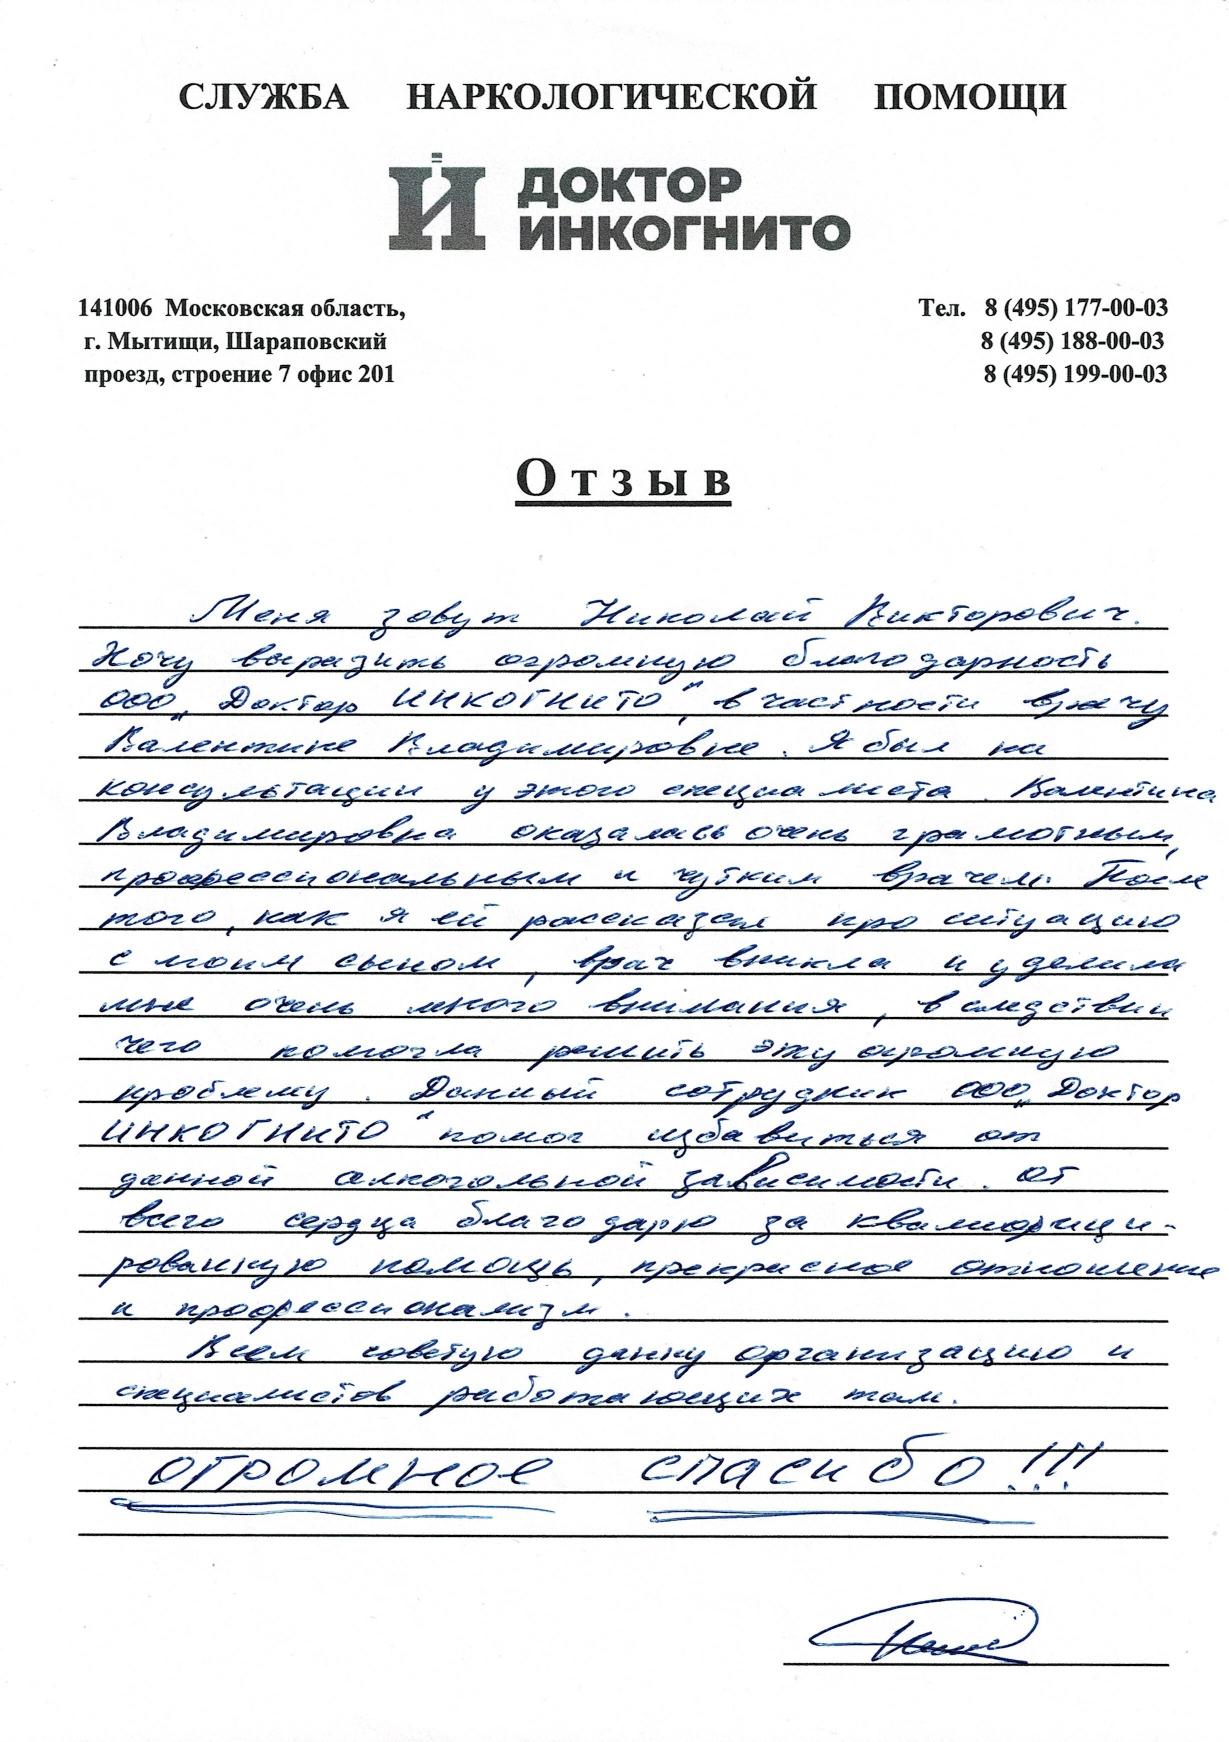 СЛУЖБА НАРКОЛОГИЧЕСКОЙ ПОМОЩИ
ДОКТОР
ИНКОГНИТО
141006 Московская область,
г. Мытищи, Шараповский
проезд, строение 7 офис 201
Тел. 8 (495) 177-00-03
8 (495) 188-00-03
8 (495) 199-00-03
Отзыв
Меня зовут Николай Викторович.
Хочу выразить огромную благодарность
ООО „Доктор ИНКОГНИТО", в частности врачу
Валентине Владимировне. Я был на
консультации у этого специалиста. Валентина
Владимировна оказалась очень грамотным,
профессиональным и чутким врачем. После
того, как я ей рассказал про ситуацию
с моим сыном, врач вникла и уделила
мне очень много внимания, в следствии
чего помогла решить эту огромную
проблему. Данный сотрудник ООО „Доктор
ИНКОГНИТО" помог избавиться от
данной алкогольной зависимости. От
всего сердца благодарю за квалифици-
рованную помощь, прекрасное отношение
и профессионализм.
Всем советую данну организацию и
специалистов работающих там.
ОГРОМНОЕ СПАСИБО!!!